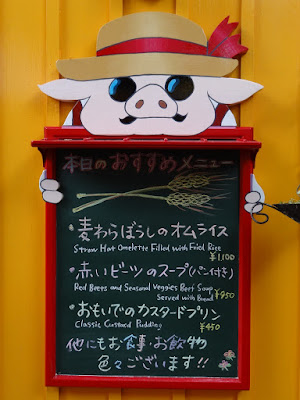 本日のおすすめメニュー
麦わらぼうしのオムライス
Straw Hat Omelette Filled with Fried Rice
¥1,100
赤いビーツのスープ(パン付き)
Red Beets and Seasonal Veggies Beef Soup
Served with Bread ¥950
おもいでのカスタードプリン
Classic Custard Pudding ¥450
他にもお食事お飲物
色々ございます!!